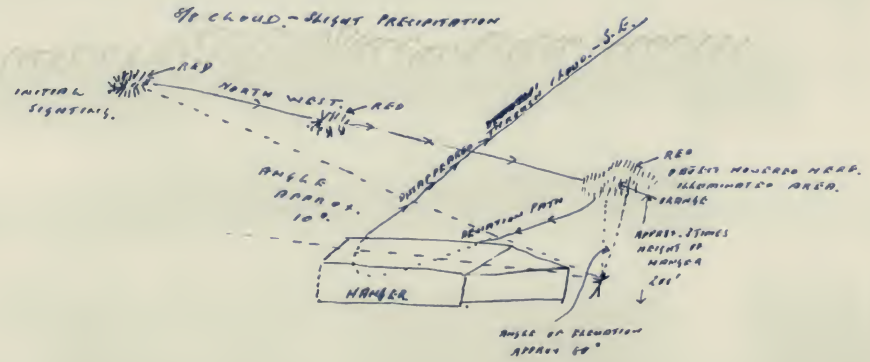 8/8 CLOUD - SLIGHT PRECIPITATION
RED
INITIAL
SIGHTING.
NORTH WEST.
RED
DISAPPEARED THROUGH CLOUD. - S.E.
ANGLE
APPROX.
10°.
RED
OBJECT HOVERED HERE.
ILLUMINATED AREA.
ORANGE
DEVIATION PATH
APPROX. 3 TIMES
HEIGHT OF
HANGER
200'
HANGER
ANGLE OF ELEVATION
APPROX 60°